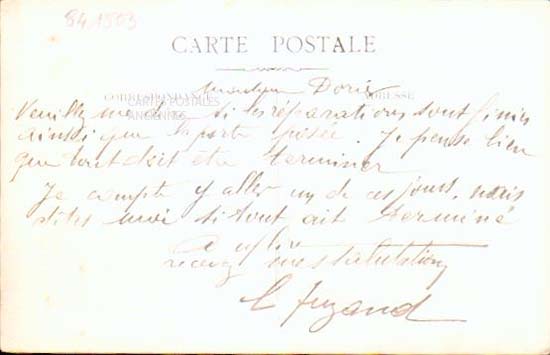 841503
CARTE POSTALE
CORRESPONDANCE ADRESSE
CARTES POSTALES
ANCIENNES
Monsieur Dorie
Veuillez me dire si les réparations sont finis
ainsi que la porte posée. Je pense bien
que tout doit être terminer
Je compte y aller un de ces jours, mais
dites moi si tout ait terminé
recevez mes salutations